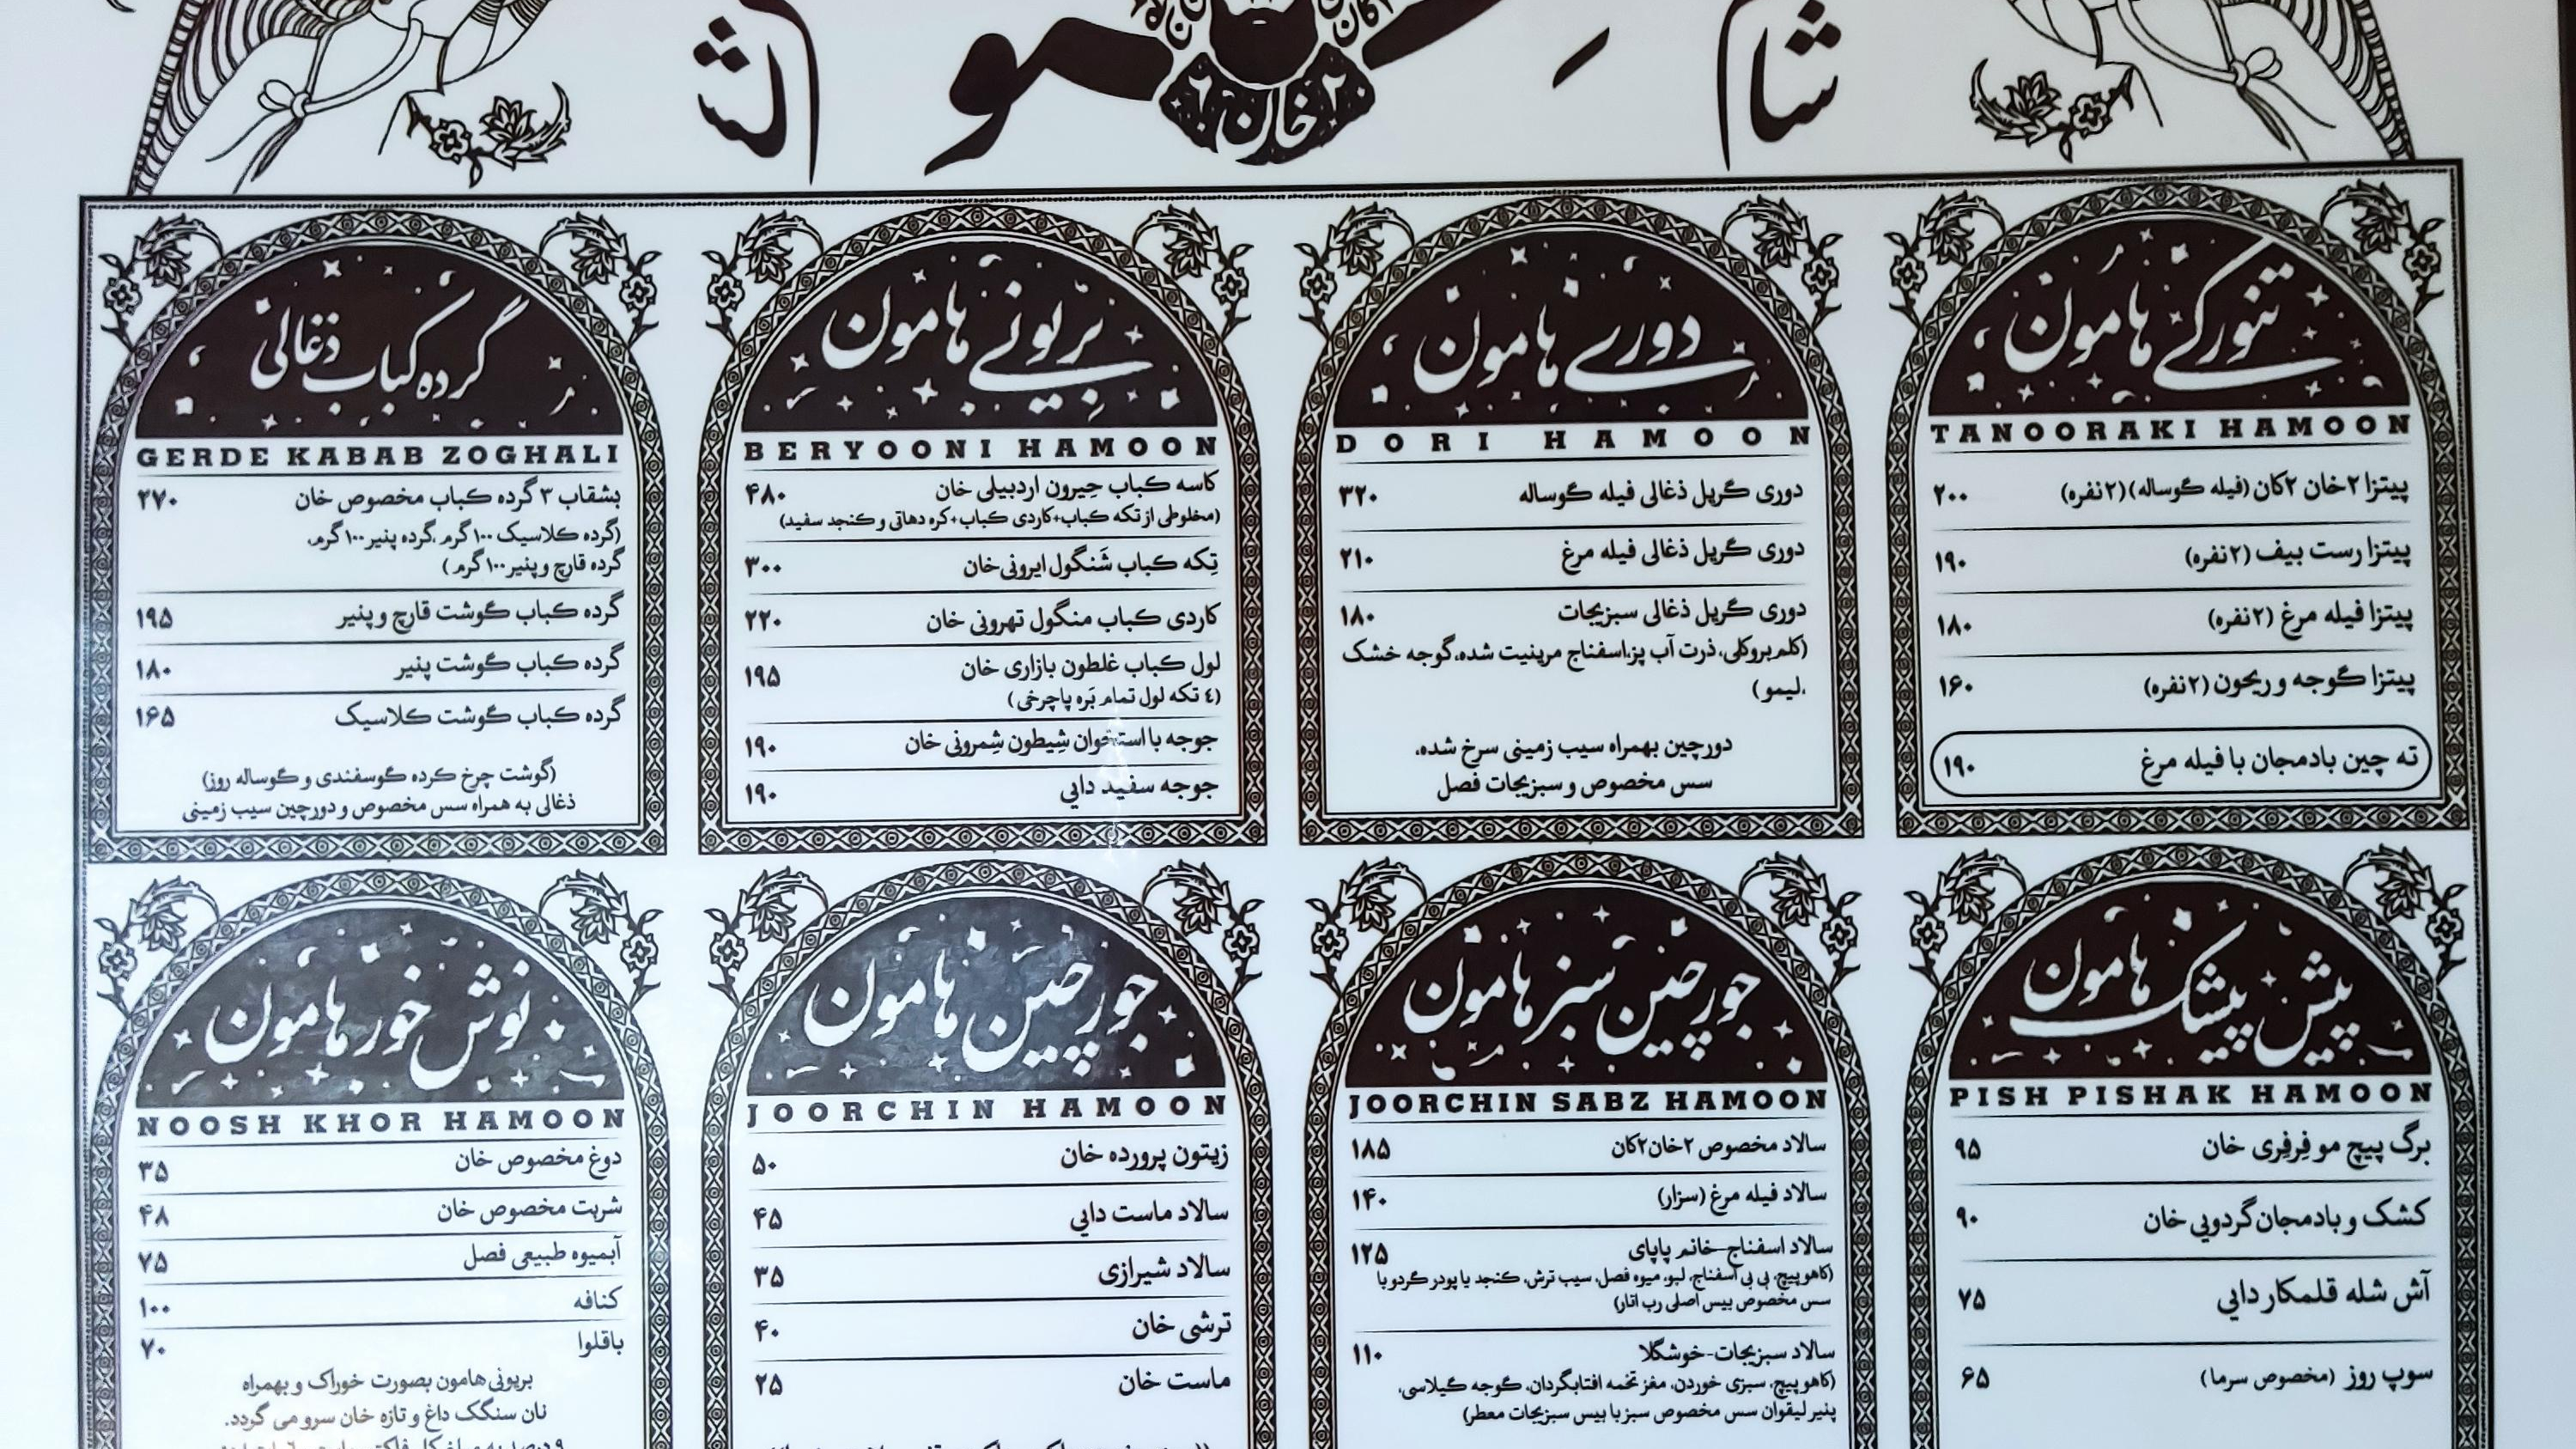 شام
۲ خان ۲
تنورکے هامون
TANOORAKI HAMOON
پیتزا ۲خان ۲کان (فیله گوساله)(۲نفره) ۲۰۰
پیتزا رست بیف (۲نفره) ۱۹۰
پیتزا فیله مرغ (۲نفره) ۱۸۰
پیتزا گوجه و ریحون (۲نفره) ۱۶۰
ته چین بادمجان با فیله مرغ ۱۹۰
دورے هامون
DORI HAMOON
دوری گریل ذغالی فیله گوساله ۳۲۰
دوری گریل ذغالی فیله مرغ ۲۱۰
دوری گریل ذغالی سبزیجات ۱۸۰
(کلم بروکلی، ذرت آب پز،اسفناج مرینیت شده،گوجه خشک
،لیمو)
دورچین بهمراه سیب زمینی سرخ شده،
سس مخصوص و سبزیجات فصل
بریونے هامون
BERYOONI HAMOON
کاسه کباب حِیرون اردبیلی خان ۴۸۰
(مخلوطی از تکه کباب+کاردی کباب+کره دهاتی و کنجد سفید)
تِکه کباب شَنگول ایرونی خان ۳۰۰
کاردی کباب منگول تهرونی خان ۲۲۰
لول کباب غلطون بازاری خان ۱۹۵
(٤ تکه لول تمام بَره پاچرخی)
جوجه با استخوان شِیطون شِمرونی خان ۱۹۰
جوجه سفید دایی ۱۹۰
گرده کباب ذغالی
GERDE KABAB ZOGHALI
بشقاب ۳ گرده کباب مخصوص خان ۲۷۰
(گرده کلاسیک ۱۰۰ گرم ،گرده پنیر ۱۰۰ گرم،
گرده قارچ و پنیر ۱۰۰ گرم)
گرده کباب گوشت قارچ و پنیر ۱۹۵
گرده کباب گوشت پنیر ۱۸۰
گرده کباب گوشت کلاسیک ۱۶۵
(گوشت چرخ کرده گوسفندی و گوساله روز)
ذغالی به همراه سس مخصوص و دورچین سیب زمینی
پیش پیشک هامون
PISH PISHAK HAMOON
برگ پیچ مو فِرفِری خان ۹۵
کشک و بادمجان گردویی خان ۹۰
آش شله قلمکار دایی ۷۵
سوپ روز (مخصوص سرما) ۶۵
جورچین سبز هامون
JOORCHIN SABZ HAMOON
سالاد مخصوص ۲خان۲کان ۱۸۵
سالاد فیله مرغ (سزار) ۱۴۰
سالاد اسفناج-خانم پاپای ۱۲۵
(کاهو پیچ، بی بی اسفناج، لبو، میوه فصل، سیب ترش، کنجد یا پودر گردو با
سس مخصوص بیس اصلی رب انار)
سالاد سبزیجات-خوشگلا ۱۱۰
(کاهو پیچ، سبزی خوردن، مغز تخمه افتابگردان، گوجه گیلاسی،
پنیر لیقوان سس مخصوص سبز با بیس سبزیجات معطر)
جورچین هامون
JOORCHIN HAMOON
زیتون پرورده خان ۵۰
سالاد ماست دایی ۴۵
سالاد شیرازی ۳۵
ترشی خان ۴۰
ماست خان ۲۵
نوش خور هامون
NOOSH KHOR HAMOON
دوغ مخصوص خان ۳۵
شربت مخصوص خان ۴۸
آبمیوه طبیعی فصل ۷۵
کنافه ۱۰۰
باقلوا ۷۰
بریونی هامون بصورت خوراک و بهمراه
نان سنگک داغ و تازه خان سرو می گردد.